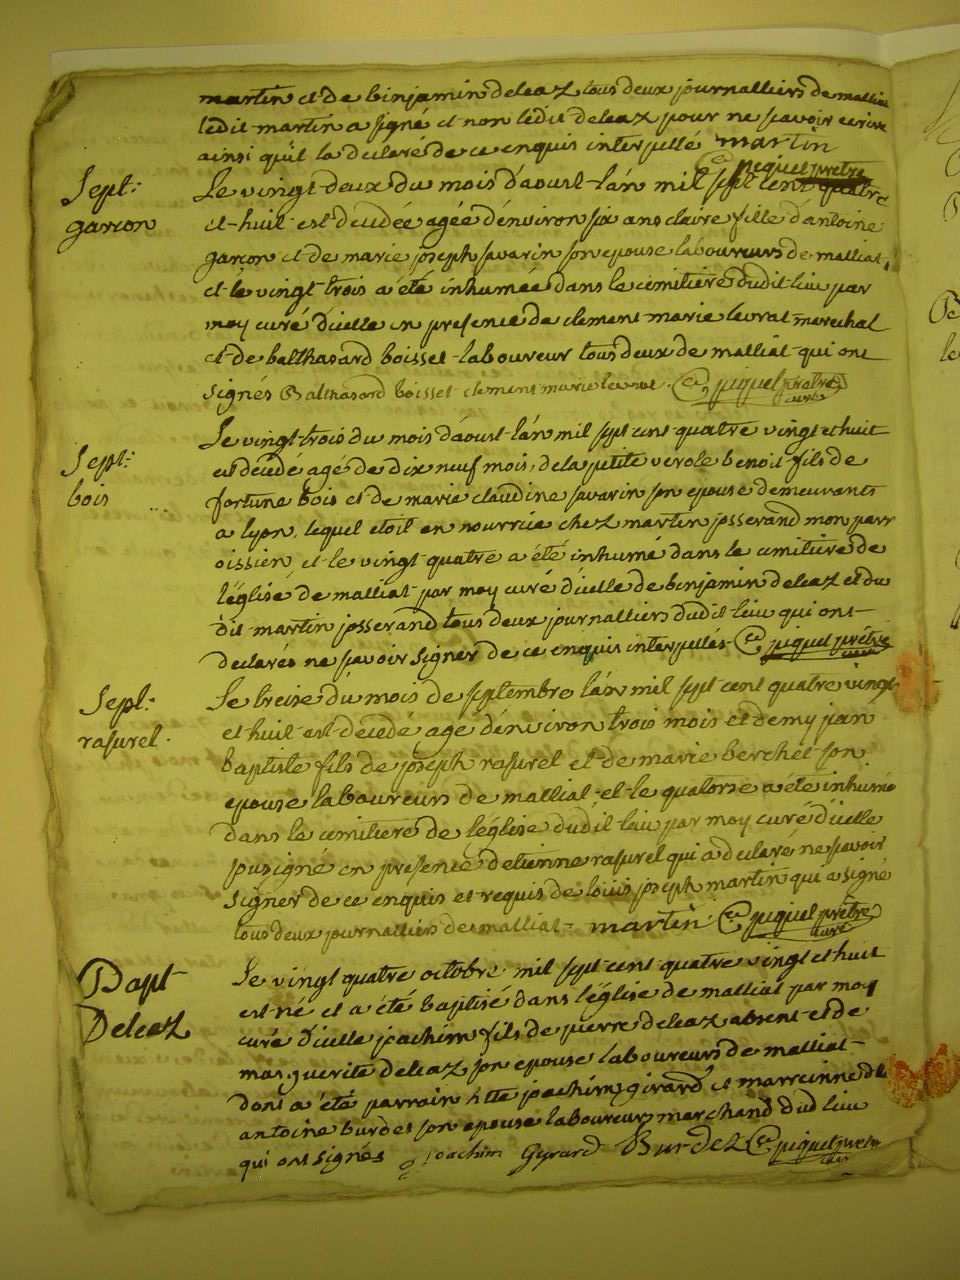 martin et de binjamin deleaz tous deux journalliers de malliat
ledit martin a signé et non ledit deleaz pour ne savoir ecrire
ainsi qu'il la declaré de ce enquis interpellé martin
piquet pretre
Sept:
garcon
Le vingt deux du mois d'aoust l'an mil sept cent quatre
et huit est decedée agée d'environ six ans claire fille d'antoine
garcon et de marie joseph savarin son epouse laboureurs de malliat,
et le vingt trois a été inhumée dans le cemitiere dudit lieu par
moy curé d'icelle en presence de clement marie levrat marechal
et de balthasard boisset laboureur tous deux de malliat qui ont
signés Balthasard boisset clement marie levrat piquet pretre
curé
Sept:
bois
Le vingt trois du mois d'aoust l'an mil sept cent quatre vingt et huit
est decedé agé de dix neuf mois, de la petite verole benoit fils de
fortune bois et de marie claudine savarin son epouse demeurants
a lyon, lequel etoit en nourrice chez martin josserand mon parr
oissien, et le vingt quatre a été inhumé dans le cemitiere de
l'église de malliat par moy curé d'icelle de binjamin deleaz et du
dit martin josserand tous deux journalliers dudit lieu qui ont
declarés ne savoir signer de ce enquis interpellés piquet prêtre
curé
Sept:
rasurel.
Le treise du mois de septembre l'an mil sept cent quatre vingt
et huit est decedé agé d'environ trois mois et demy jean
baptiste fils de joseph rasurel et de marie berchet son
epouse laboureurs de malliat et le quatorse a été inhumé
dans le cemitiere de l'église dudit lieu par moy curé d'icelle
susigné en presence d'etienne rasurel qui a declaré ne savoir
signer de ce enquis et requis de louis joseph martin qui a signé
tous deux journalliers de malliat martin piquet prêtre
curé
Bapt
Deleaz
Le vingt quatre octobre mil sept cent quatre vingt et huit
est né et a été baptisé dans l'église de malliat par moy
curé d'icelle joachim fils de pierre deleaz absent et de
marguerite deleaz son epouse laboureurs de malliat
dont a été parrain joachim girard et marreinne
antoine burdet son epouse laboureur marchand dud lieu
qui ont signés joachim Gyrard Burdez piquet pretre
curé